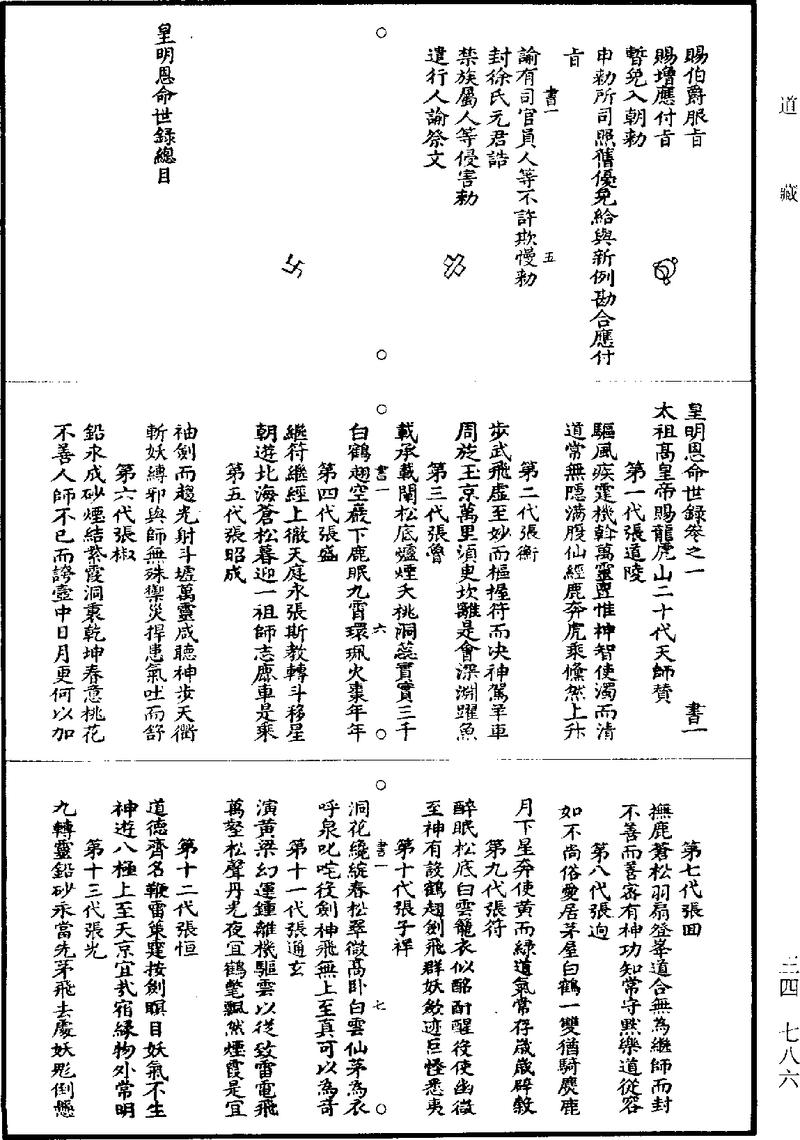 道藏
賜伯爵服旨
賜增應付旨
暫免入朝勑
申勑所司照舊優免給與新例勘合應付
旨
諭有司官員人等不許欺慢勑
書一 五
封徐氏元君誥
禁族屬人等侵害勑
遣行人諭祭文
皇明恩命世錄總目
皇明恩命世錄卷之一 書一
太祖高皇帝賜龍虎山二十代天師贊
第一代張道陵
驅風疾霆機斡萬靈豈惟神智使濁而清
道常無隱滿腹仙經鹿奔虎乘翛然上升
第二代張衡
步武飛虛至妙而樞握符而决神駕羊車
周旋玉京萬里須臾坎離是會深淵躍魚
第三代張魯
載承載闡松底爐煙夭桃洞蕊蕡實三千
書一 六
白鶴翅空巖下鹿眠九霄環珮火棗年年
第四代張盛
繼符繼經上徹天庭永張斯教轉斗移星
朝遊北海蒼松暮迎一祖師志麃車是乘
第五代張昭成
袖劍而趨光射斗墟萬靈咸聽神步天衢
斬妖縛邪與師無殊禦災捍患氣吐而舒
第六代張椒
鉛汞成砂煙結紫霞洞裏乾坤春意桃花
不善人師不已而誇壺中日月更何以加
第七代張回
撫鹿蒼松羽扇登峯道合無為繼師而封
不善而善密有神功知常守黙樂道從容
第八代張迥
如不尚俗愛居茅屋白鶴一雙猶騎麋鹿
月下星奔使黃而綠道氣常存歲歲辟穀
第九代張符
醉眠松底白雲籠衣似酩酊醒役使幽微
至神有設鶴翅劍飛群妖斂迹巨怪悉夷
第十代張子祥
書一 七
洞花纔綻春松翠微高卧白雲仙茅為衣
呼泉叱咤役劍神飛無上至真可以為奇
第十一代張通玄
演黃梁幻運鍾離機驅雲以從致雷電飛
萬壑松聲丹光夜宜鶴氅飄然煙霞是宜
第十二代張恒
道德齊名鞭雷策霆按劍瞑目妖氣不生
神遊八極上至天京宜哉宿緣物外常明
第十三代張光
九轉靈鉛砂汞當先茅飛去處妖彪倒懸
三四 七八六